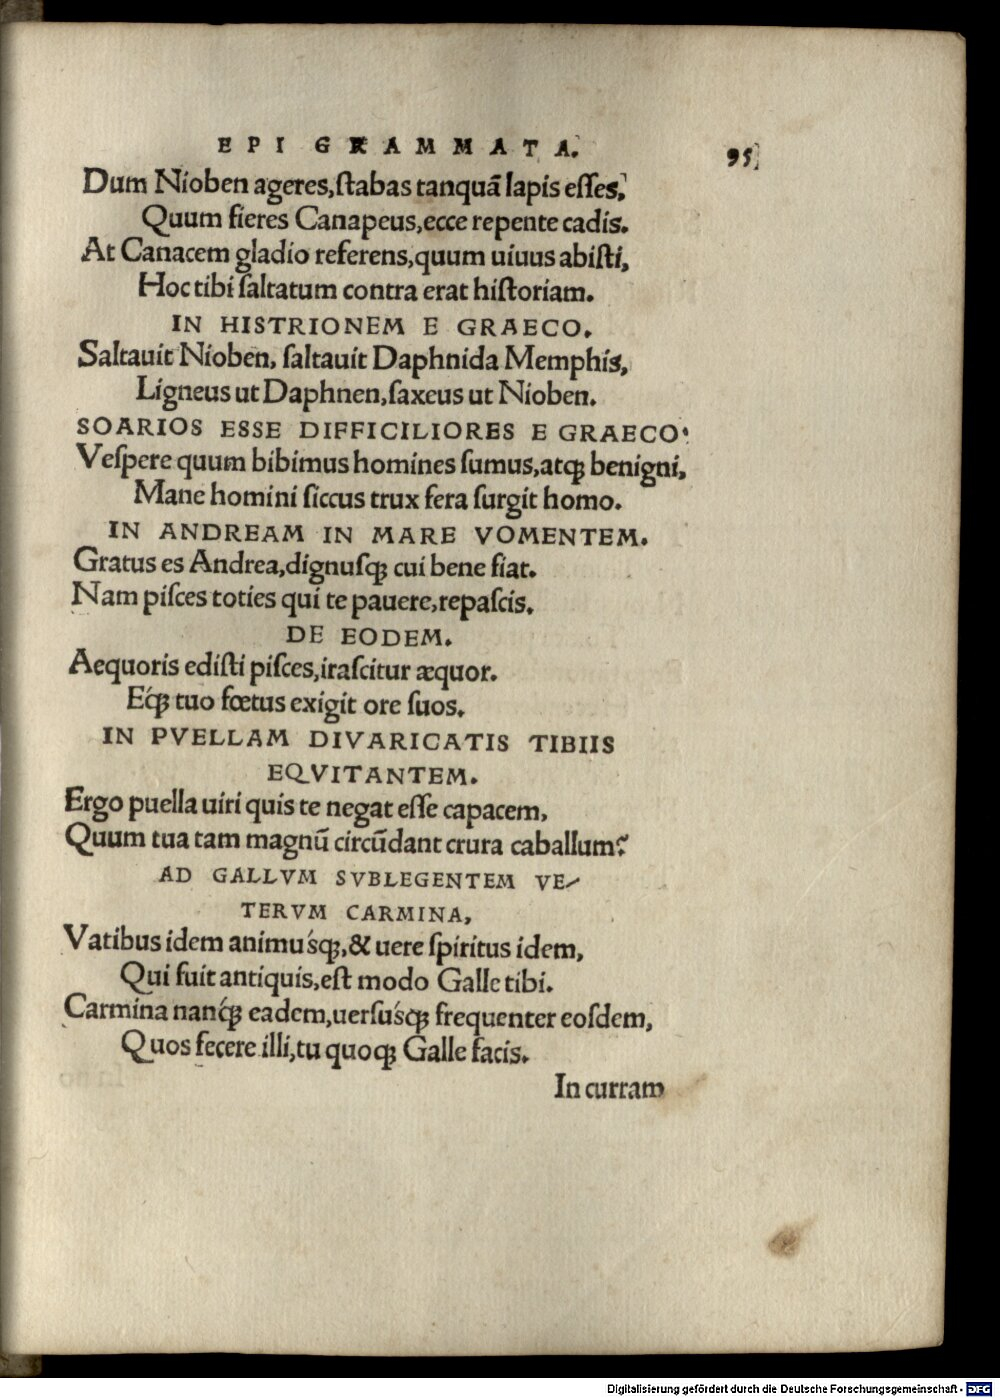 EPIGRAMMATA. 95
Dum Nioben ageres,ſtabas tanquã lapis eſſes,
Quum fieres Canapeus,ecce repente cadis.
At Canacem gladio referens,quum uiuus abiſti,
Hoc tibi ſaltatum contra erat hiſtoriam.
IN HISTRIONEM E GRAECO.
Saltauit Nioben, ſaltauit Daphnida Memphis,
Ligneus ut Daphnen,ſaxeus ut Nioben.
SOARIOS ESSE DIFFICILIORES E GRAECO.
Veſpere quum bibimus homines ſumus,atq; benigni,
Mane homini ſiccus trux fera ſurgit homo.
IN ANDREAM IN MARE VOMENTEM.
Gratus es Andrea,dignuſq; cui bene fiat.
Nam piſces toties qui te pauere,repaſcis.
DE EODEM.
Aequoris ediſti piſces,iraſcitur æquor.
Eq́; tuo fœtus exigit ore ſuos.
IN PVELLAM DIVARICATIS TIBIIS
EQVITANTEM.
Ergo puella uiri quis te negat eſſe capacem,
Quum tua tam magnũ circũdant crura caballum?
AD GALLVM SVBLEGENTEM VE-
TERVM CARMINA,
Vatibus idem animuśq;,& uere ſpiritus idem,
Qui fuit antiquis,eſt modo Galle tibi.
Carmina nanq́; eadem,uerſuśq; frequenter eoſdem,
Quos fecere illi,tu quoq; Galle facis.
In curram
Digitalisierung gefördert durch die Deutsche Forschungsgemeinschaft - DFG